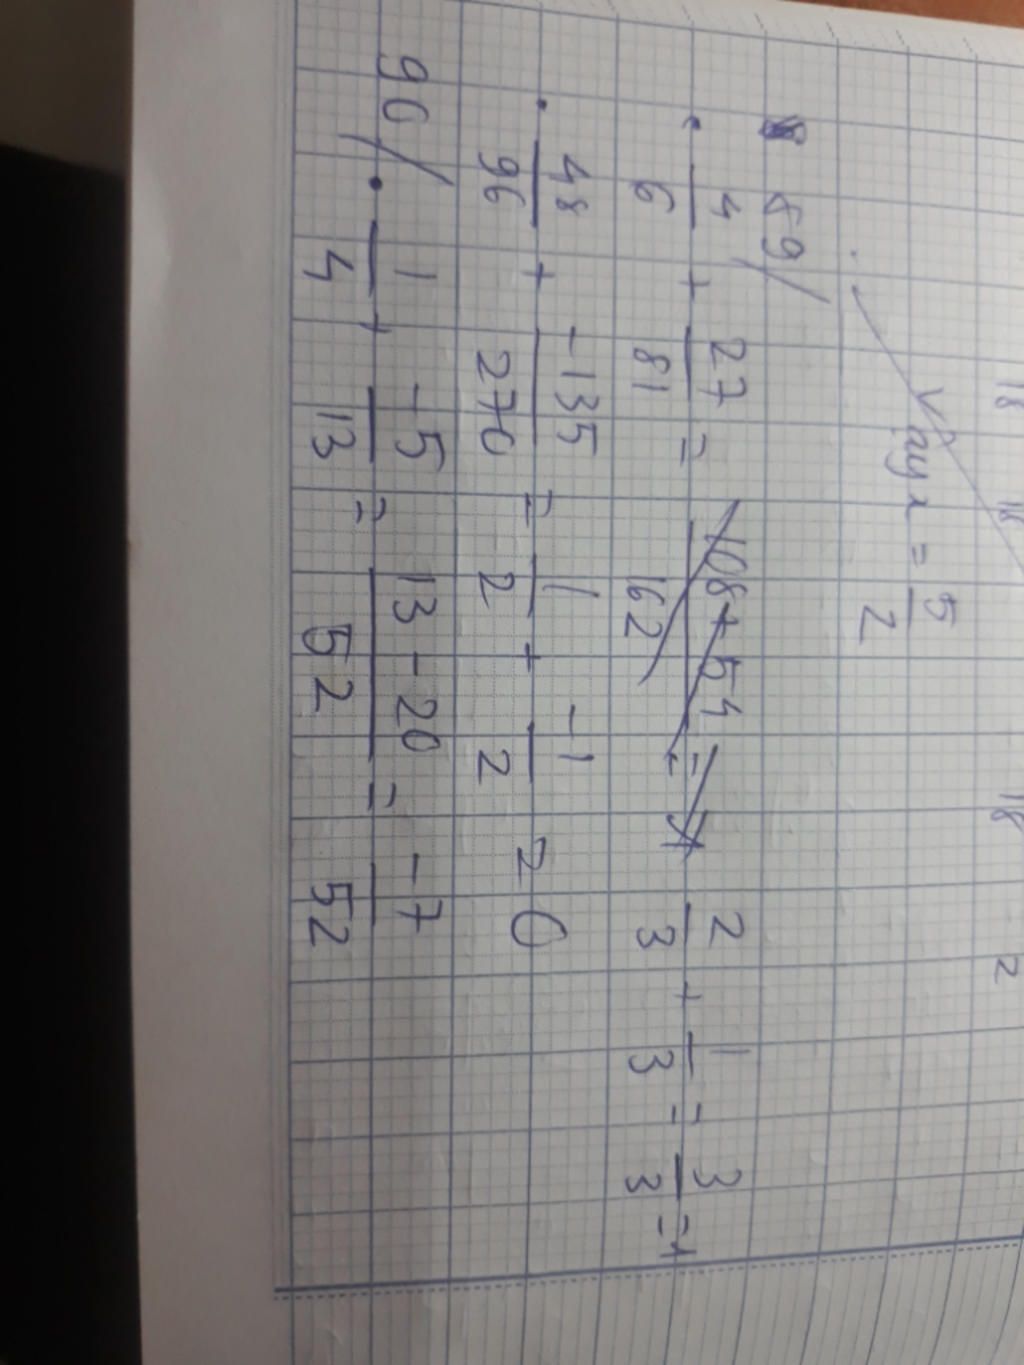 18 18 18 2
Vậy x = 5/2
89/
• 4/6 + 27/81 = 108+54/162 = 1 2/3 + 1/3 = 3/3 = 1
• 48/96 + -135/270 = 1/2 + -1/2 = 0
90/ • 1/4 + -5/13 = 13-20/52 = -7/52